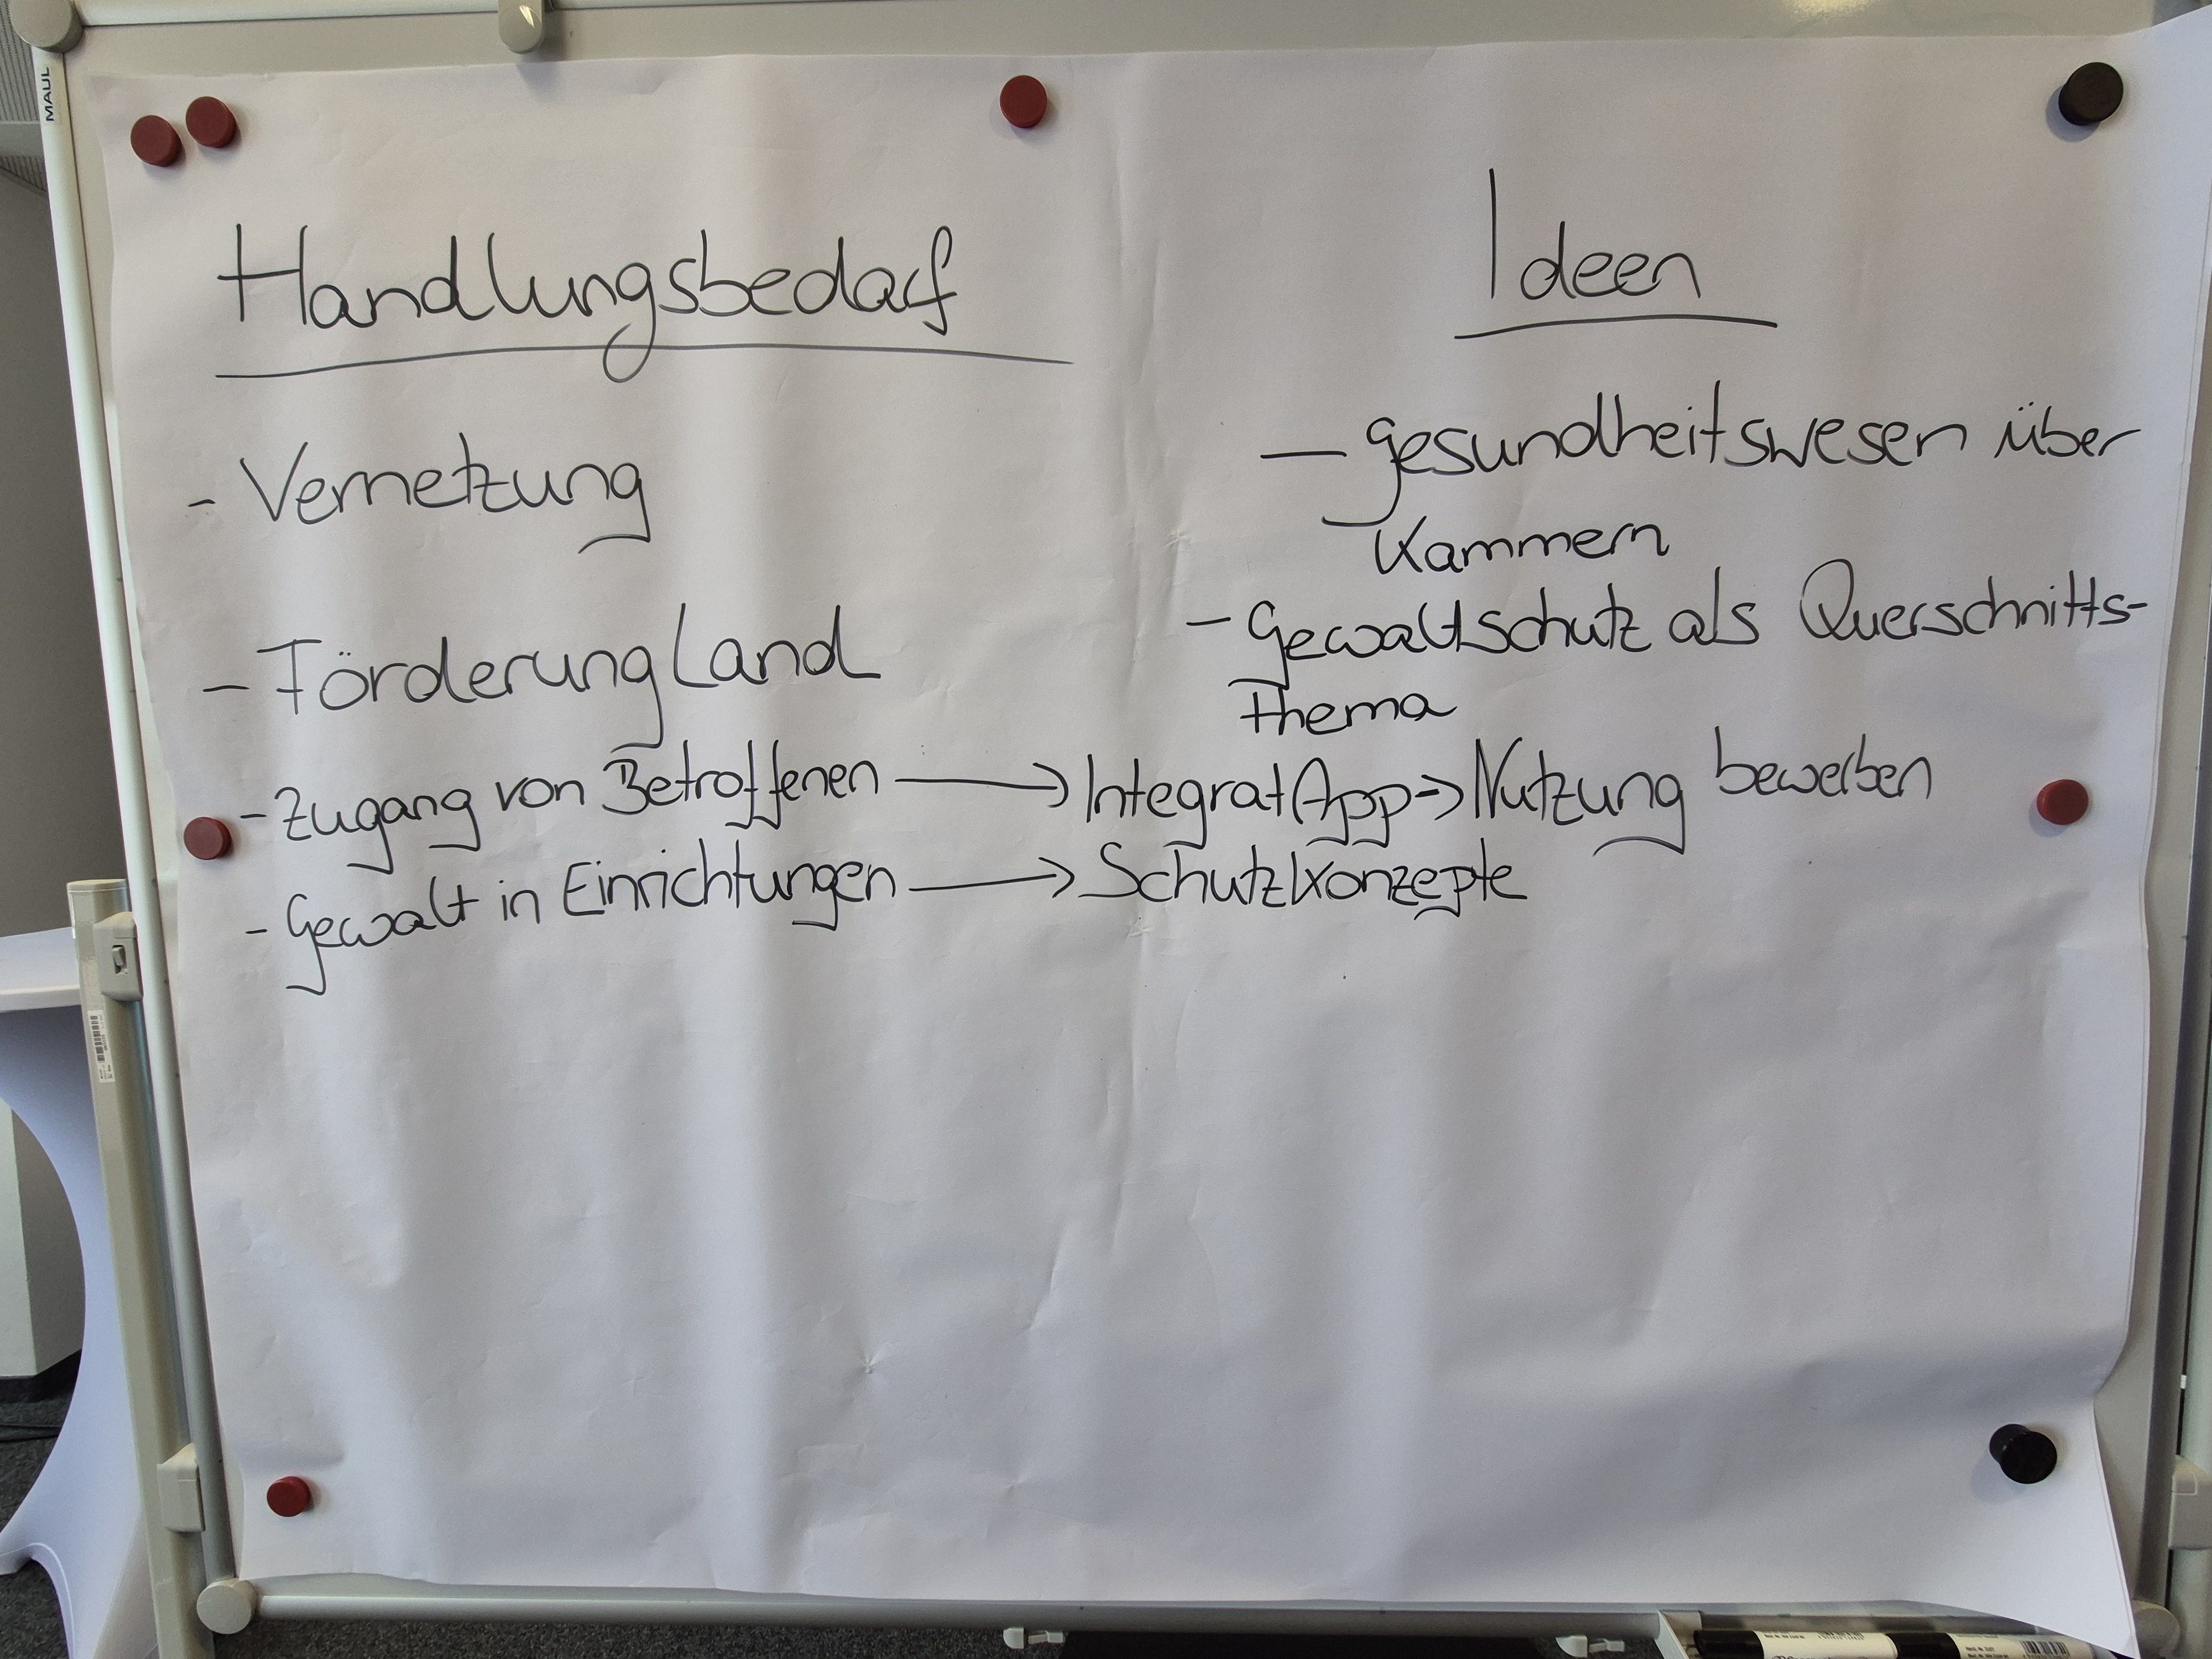 MAUL
Handlungsbedarf
- Vernetzung
- Förderung Land
- Zugang von Betroffenen → Integrat App -> Nutzung bewerben
- Gewalt in Einrichtungen → Schutzkonzepte
Ideen
- Gesundheitswesen über
Kammern
- Gewaltschutz als Querschnitts-
thema